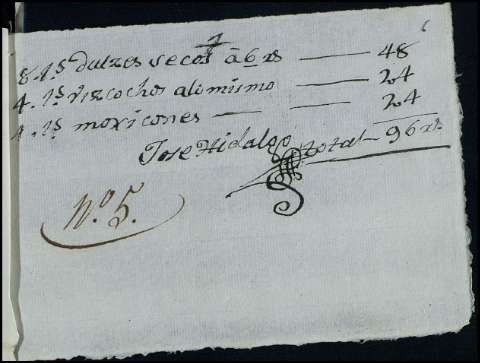 8 ls dulzes secos â 6 rs — 48
4. ls vizcochos alimismo — 24
4. ls moxicones — — 24
Jose Hidalgo total — 96 rs.
No. 5.